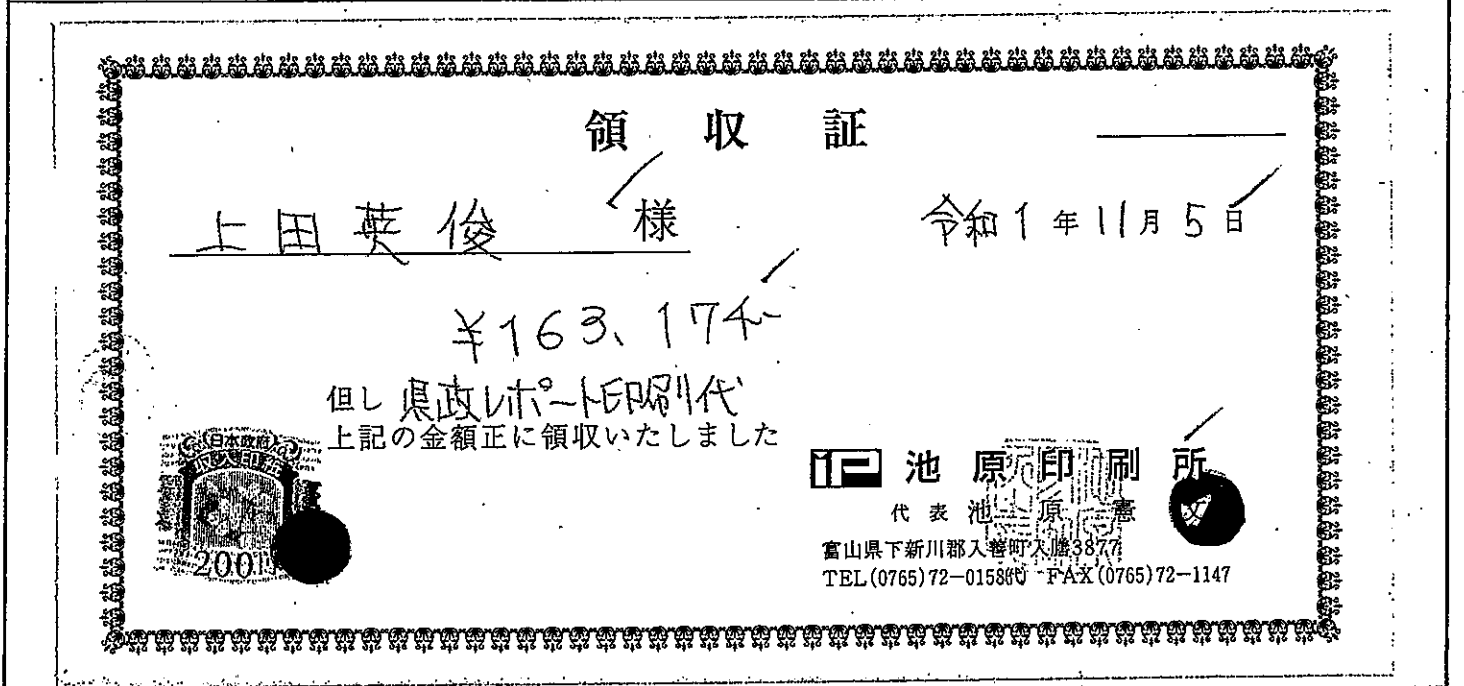 領収証
上田英俊 様
令和1年11月5日
¥163、174-
但し 県政レポート印刷代
上記の金額正に領収いたしました
日本政府
収入印紙
200円
iP 池原印刷所
代表 池原憲文
富山県下新川郡入善町入膳3877
TEL(0765)72-0158㈹ FAX(0765)72-1147